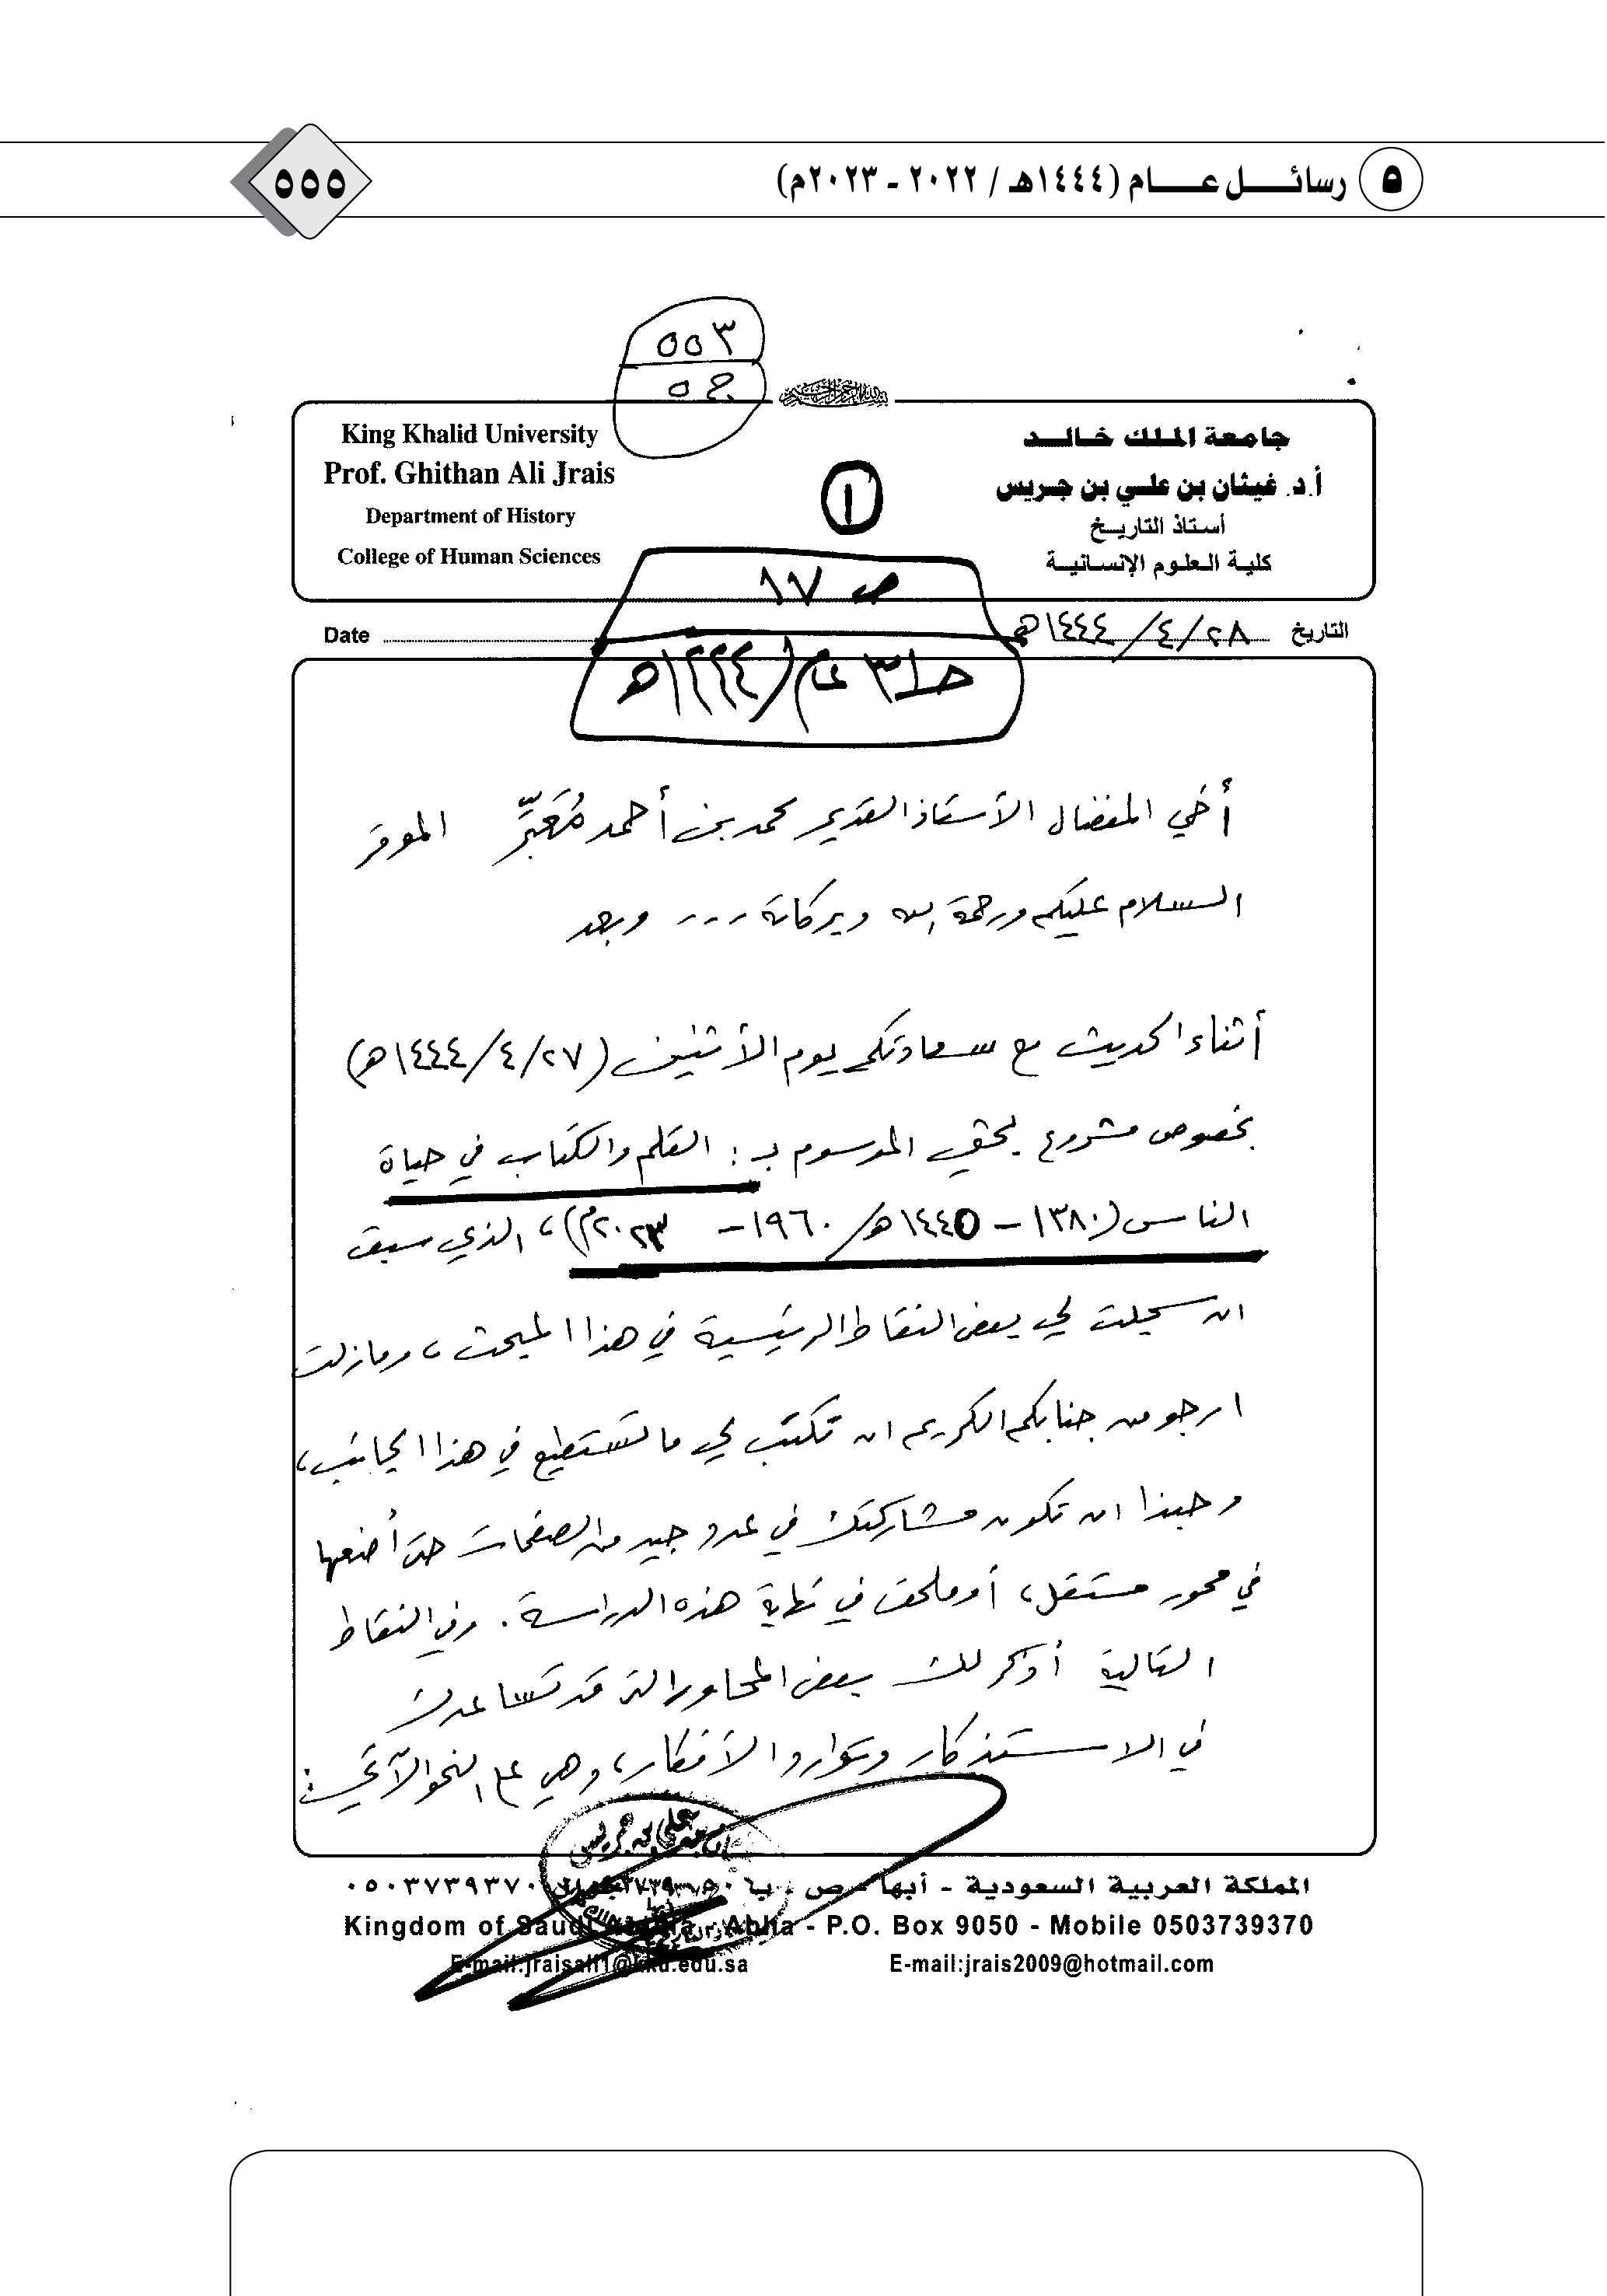 ٥ رسائل عام (١٤٤٤هـ / ٢٠٢٢ - ٢٠٢٣م)
٥٥٥
٥٥٣
King Khalid University
Prof. Ghithan Ali Jrais
Department of History
College of Human Sciences
١
جامعة الملك خالد
أ.د. غيثان بن علي بن جريس
أستاذ التاريخ
كلية العلوم الإنسانية
ص ١٧
التاريخ ٢٨/٤/١٤٤٤هـ
Date
عام (١٤٤٤هـ
أخي المفضال الأستاذ القدير محمد بن أحمد مُعَبِّر الموقر
السلام عليكم ورحمة الله وبركاته ... وبعد
أثناء الحديث مع سعادتكم يوم الأثنين (٢٧/٤/١٤٤٤هـ)
بخصوص مشروع بحثي الموسوم بـ: القلم والكتاب في حياة
الناس (١٣٨٠ - ١٤٤٥هـ/ ١٩٦٠ - ٢٠٢٣م)، الذي سبق
ان سجلت لي بعض النقاط الرئيسية في هذا المبحث، ومازلت
ارجو من جنابكم الكريم ان تكتب لي ما تستطيع في هذا الجانب،
وحبذا ان تكون مشاركتك في عدد جيد من الصفحات حتى أضعها
في محور مستقل، أو ملحق في نهاية هذه الدراسة. وفي النقاط
التالية أذكر لك بعض المحاور التي قد تساعدك
في الاستذكار وتوارد الأفكار، وهي على النحو الآتي:
بن علي بن جريس
المملكة العربية السعودية - أبها - ص . ب ٩٠٥٠ ٠٥٠٣٧٣٩٣٧٠
Kingdom of Saudi Arabia - Abha - P.O. Box 9050 - Mobile 0503739370
E-mail:jraisali1@kku.edu.sa E-mail:jrais2009@hotmail.com